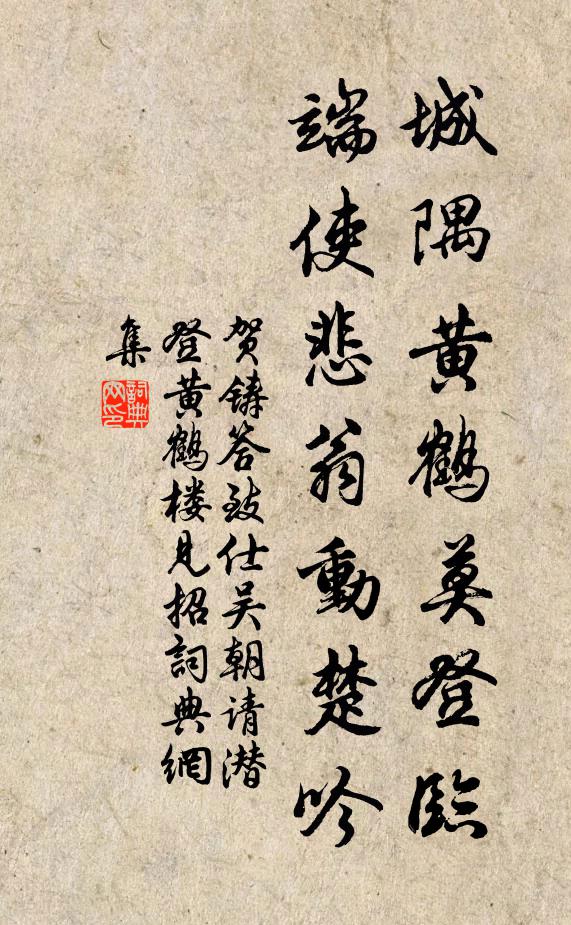 城隅黄鹤莫登臨
端使悲翁動楚吟
贺铸答致仕吴朝请潜
登黄鹤楼见招詞典網
集
詞典
网印